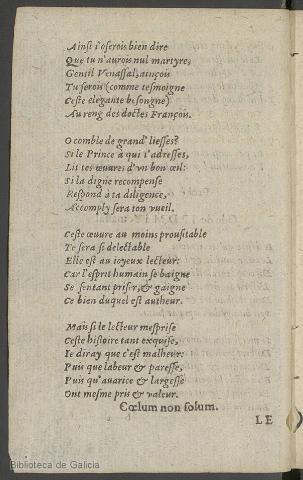 Ainsi i'oserois bien dire
Que tu n'aurois nul martyre,
Gentil Venassal, ainçois
Tu serois (comme tesmoigne
Ceste elegante besongne)
Au reng des doctes François.
O comble de grand' liesses?
Si le Prince à qui t'adresses,
Lit tes œuvres d'vn bon œil:
Si la digne recompense
Respond à ta diligence,
Accomply sera ton vueil.
Ceste œuure au moins proufitable
Te sera si delectable
Elle est au ioyeux lecteur:
Car l'esprit humain se baigne
Se sentant priser, & gaigne
Ce bien duquel est autheur.
Mais si le lecteur mesprise
Ceste histoire tant exquise,
Ie diray que c'est malheur:
Puis que labeur & paresse,
Puis qu'auarice & largesse
Ont mesme pris & valeur.
Cœlum non solum.
LE
Biblioteca de Galicia